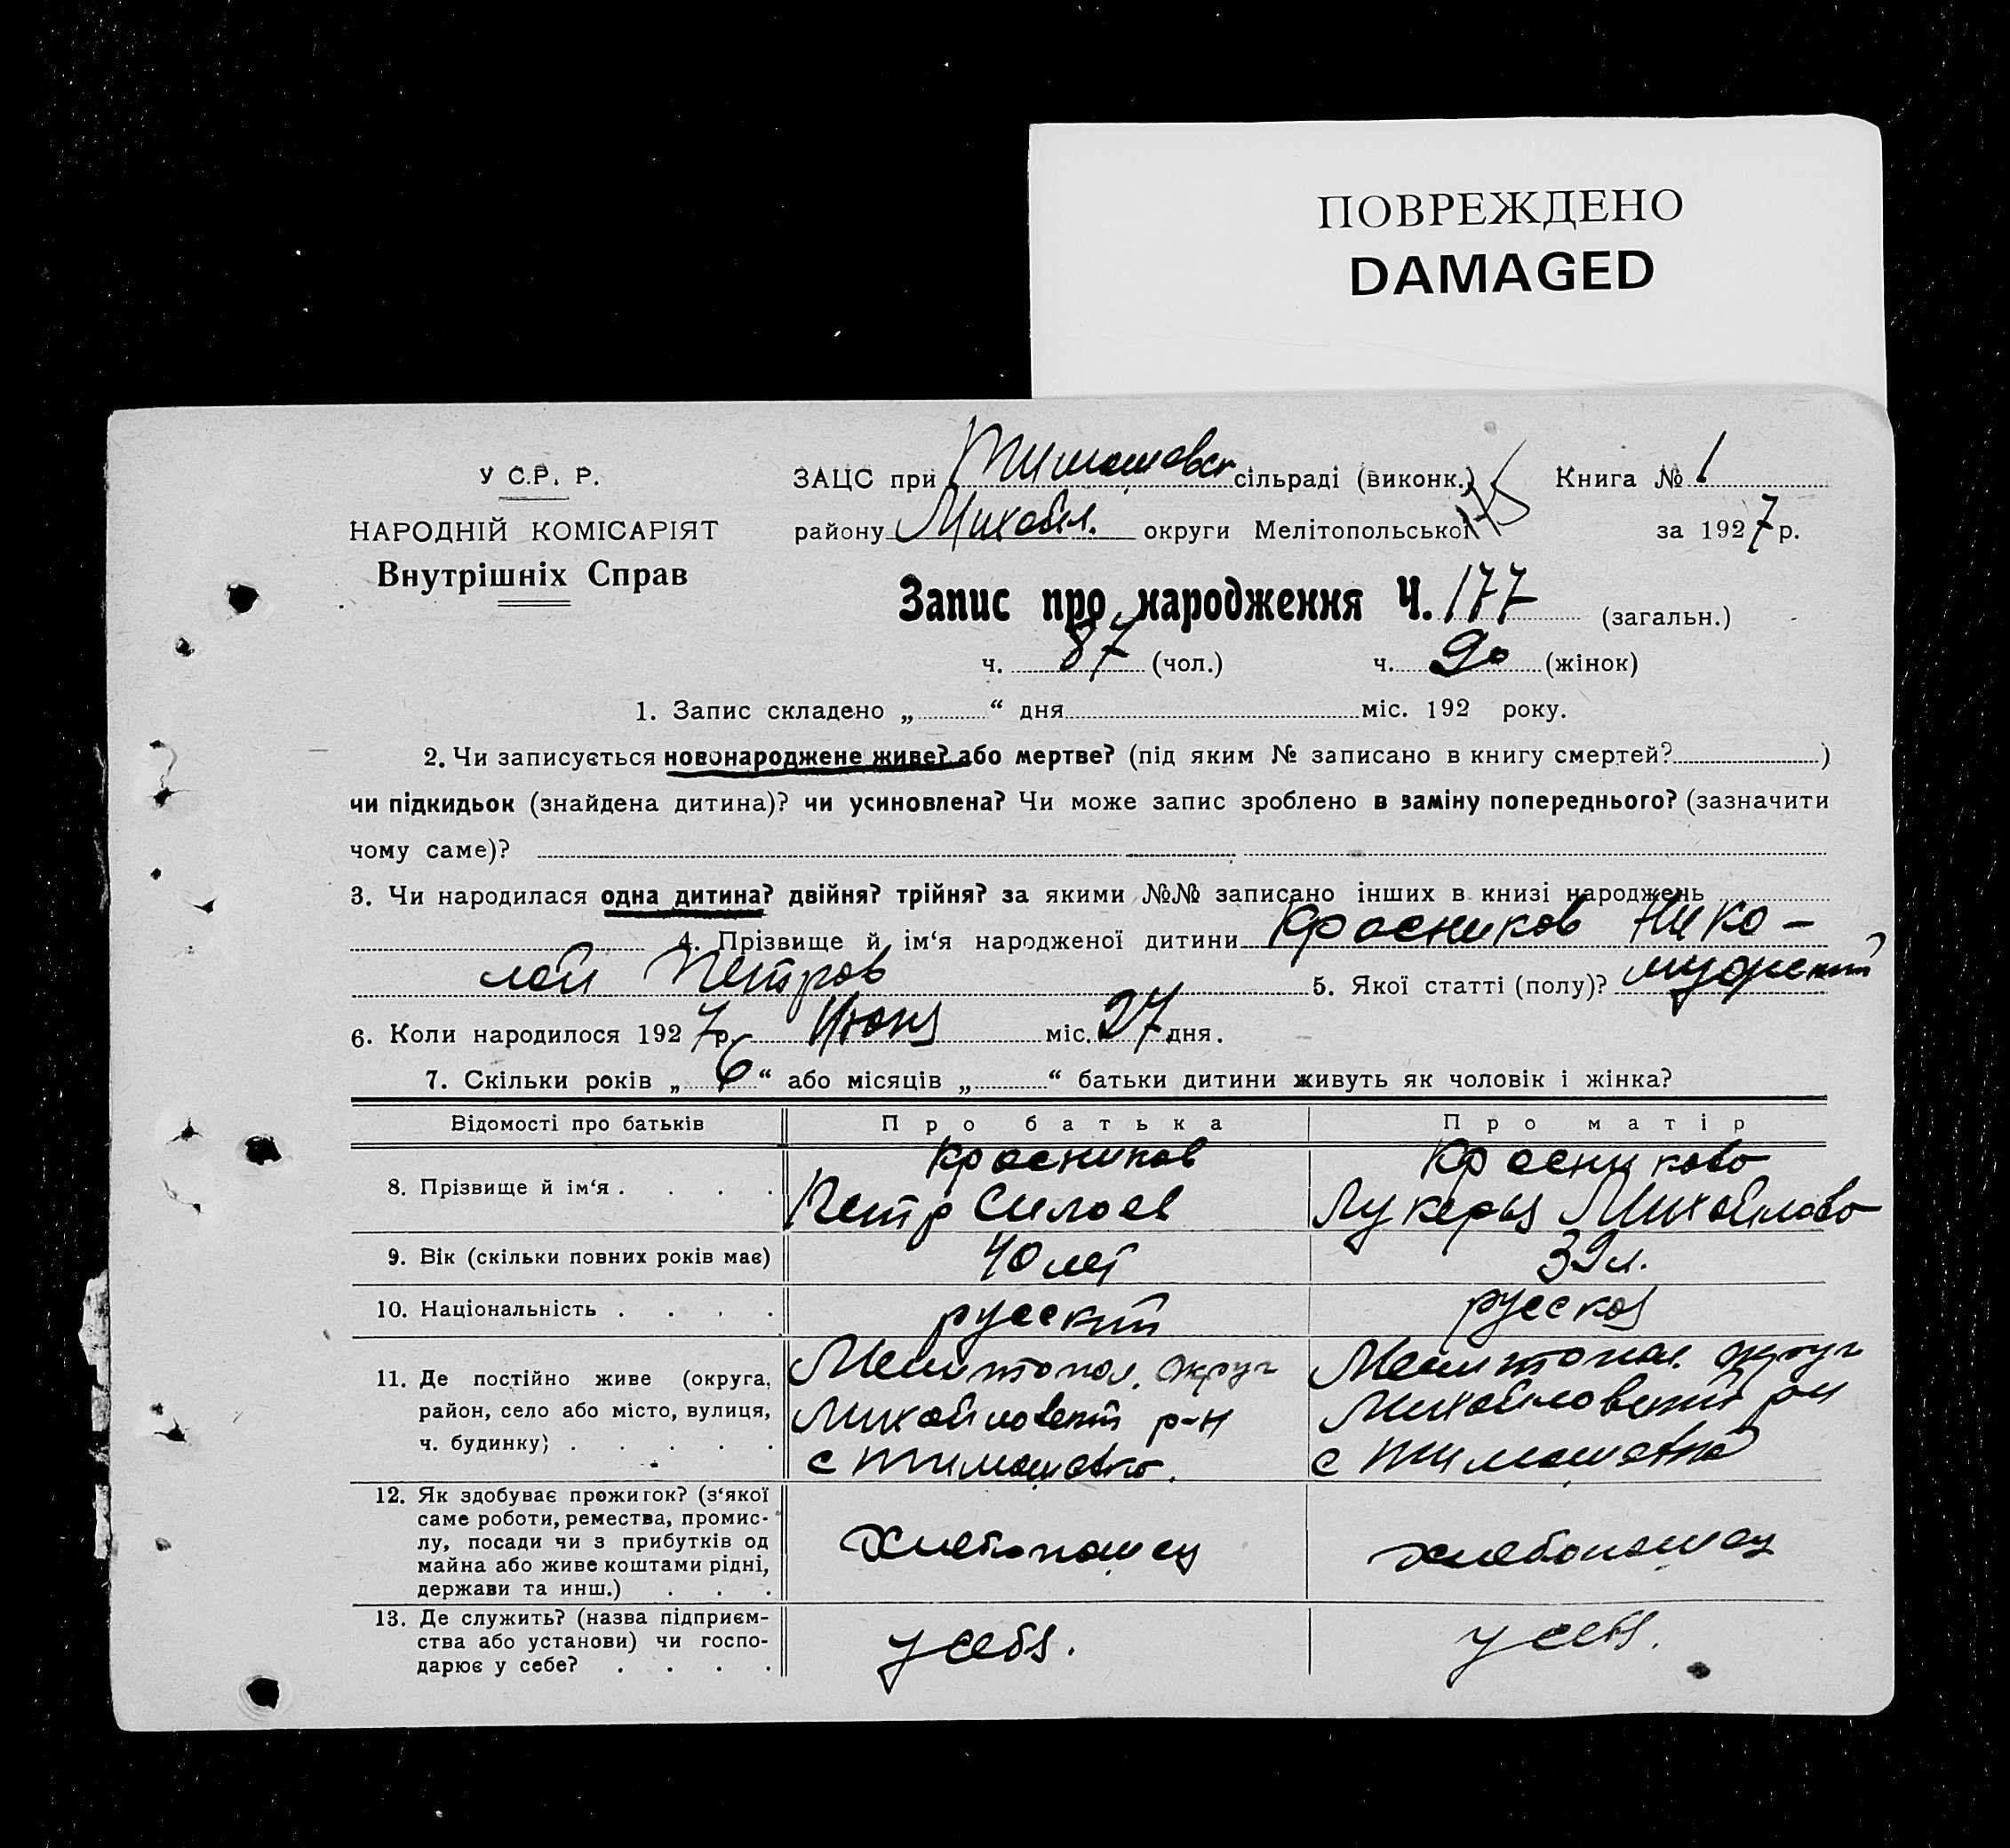 ПОВРЕЖДЕНО
DAMAGED
У С.Р. Р.
НАРОДНІЙ КОМІСАРІЯТ
Внутрішніх Справ
ЗАЦС при Тимошовск сільраді (виконк.) Книга № 1
району Михайл. округи Мелітопольської за 1927 р.
Запис про народження Ч. 177 (загальн.)
ч. 87 (чол.) ч. 90 (жінок)
1. Запис складено „ “ дня міс. 192 року.
2. Чи записується новонароджене живе? або мертве? (під яким № записано в книгу смертей? )
чи підкидьок (знайдена дитина)? чи усиновлена? Чи може запис зроблено в заміну попереднього? (зазначити
чому саме)?
3. Чи народилася одна дитина? двійня? трійня? за якими №№ записано інших в книзі народжень
4. Прізвище й ім‘я народженої дитини Красников Нико-
лай Петров 5. Якої статті (полу)? мужский
6. Коли народилося 1927 р. Июня міс. 27 дня.
7. Скільки років „ 6 “ або місяців „ “ батьки дитини живуть як чоловік і жінка?
Відомості про батьків Про батька Про матір
8. Прізвище й ім‘я . . . . Красников Красникова
Петр Силаев Лукерья Михайлова
9. Вік (скільки повних років має) 40 лет 39 л.
10. Національність . . . . русский русская
11. Де постійно живе (округа, Мелитопол. округ Мелитопол. округ
район, село або місто, вулиця, Михайловский р-н Михайловский рн
ч. будинку) . . . . . с Тимашовка. с Тимашовка
12. Як здобуває прожиток? (з‘якої
саме роботи, ремества, промис-
лу, посади чи з прибутків од хлебопашец хлебопашец
майна або живе коштами рідні,
держави та инш.) . . .
13. Де служить? (назва підприєм-
ства або установи) чи госпо- у себя. у себя.
дарює у себе? . . . .